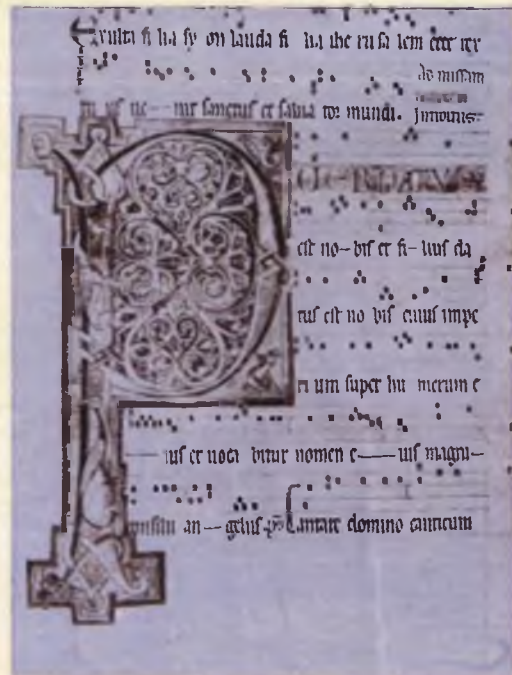 Exulta fi lia sy on lauda fi lia ihe ru sa lem ecce rex
ad missam
tu us ve – nit sanctus et salua tor mundi. Introitus.
P UER NATUS
est no– bis et fi– lius da
tus est no bis cuius impe
ri um super hu merum e
— ius et voca bitur nomen e — ius magni–
consilii an — gelus. ps Cantate domino canticum